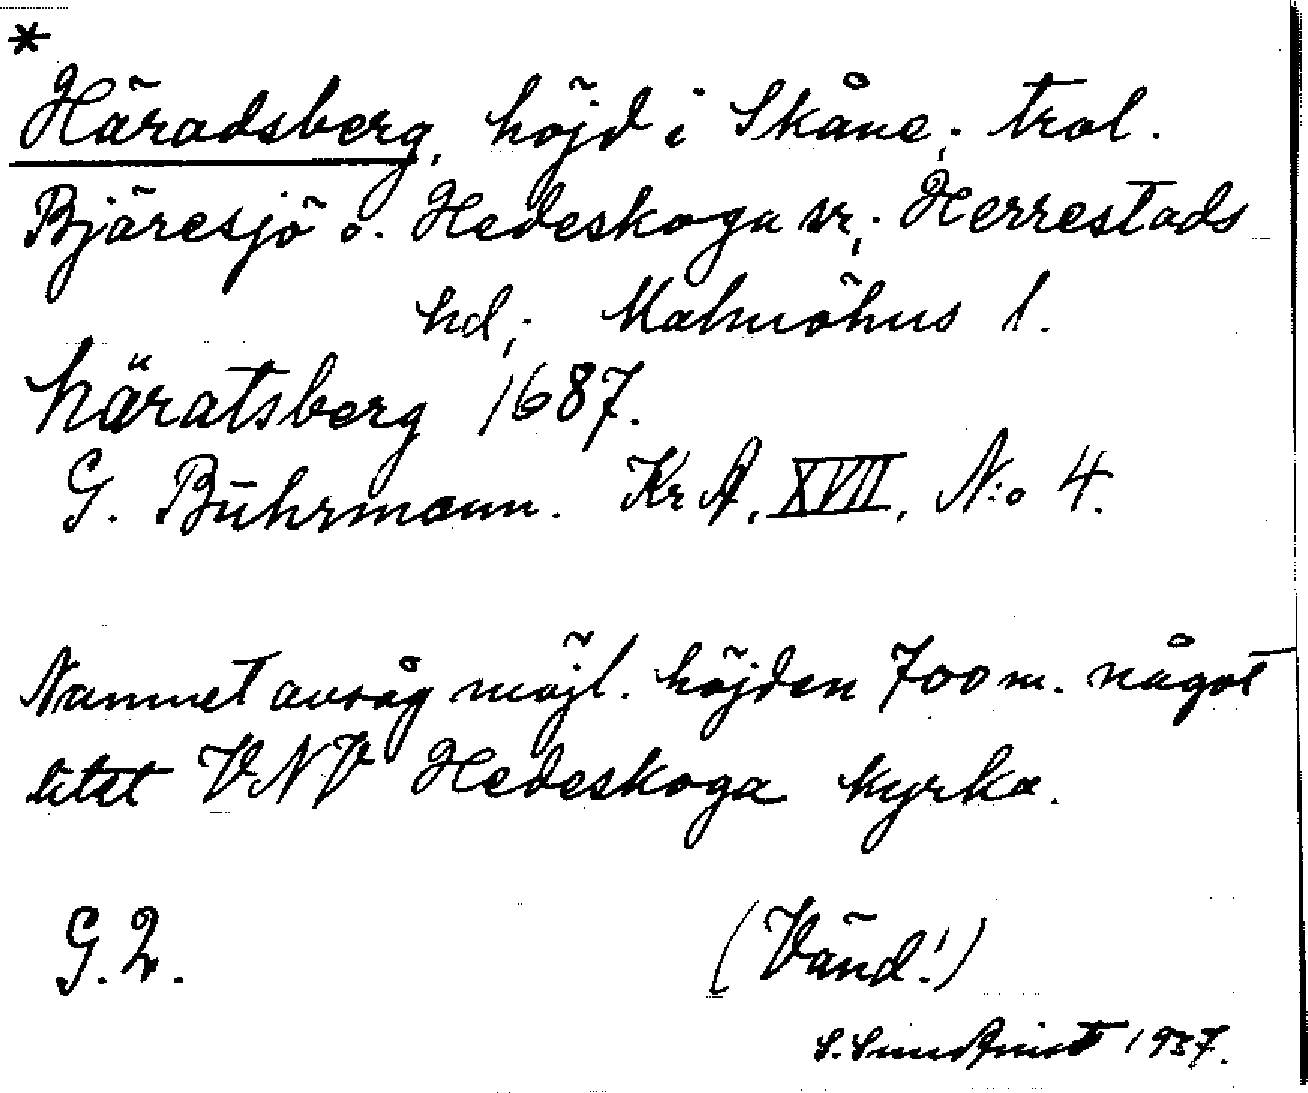 *
Häradsberg, höjd i Skåne; trol.
Bjäresjö o. Hedeskoga sn; Herrestads
hd; Malmöhus l.
häratsberg 1687.
G. Buhrmann. KrA, XVII, N:o 4.
Namnet avsåg möjl. höjden 700 m. något
litet VNV Hedeskoga kyrka.
G. 2.
(Vänd!)
S. Sundqvist 1937.